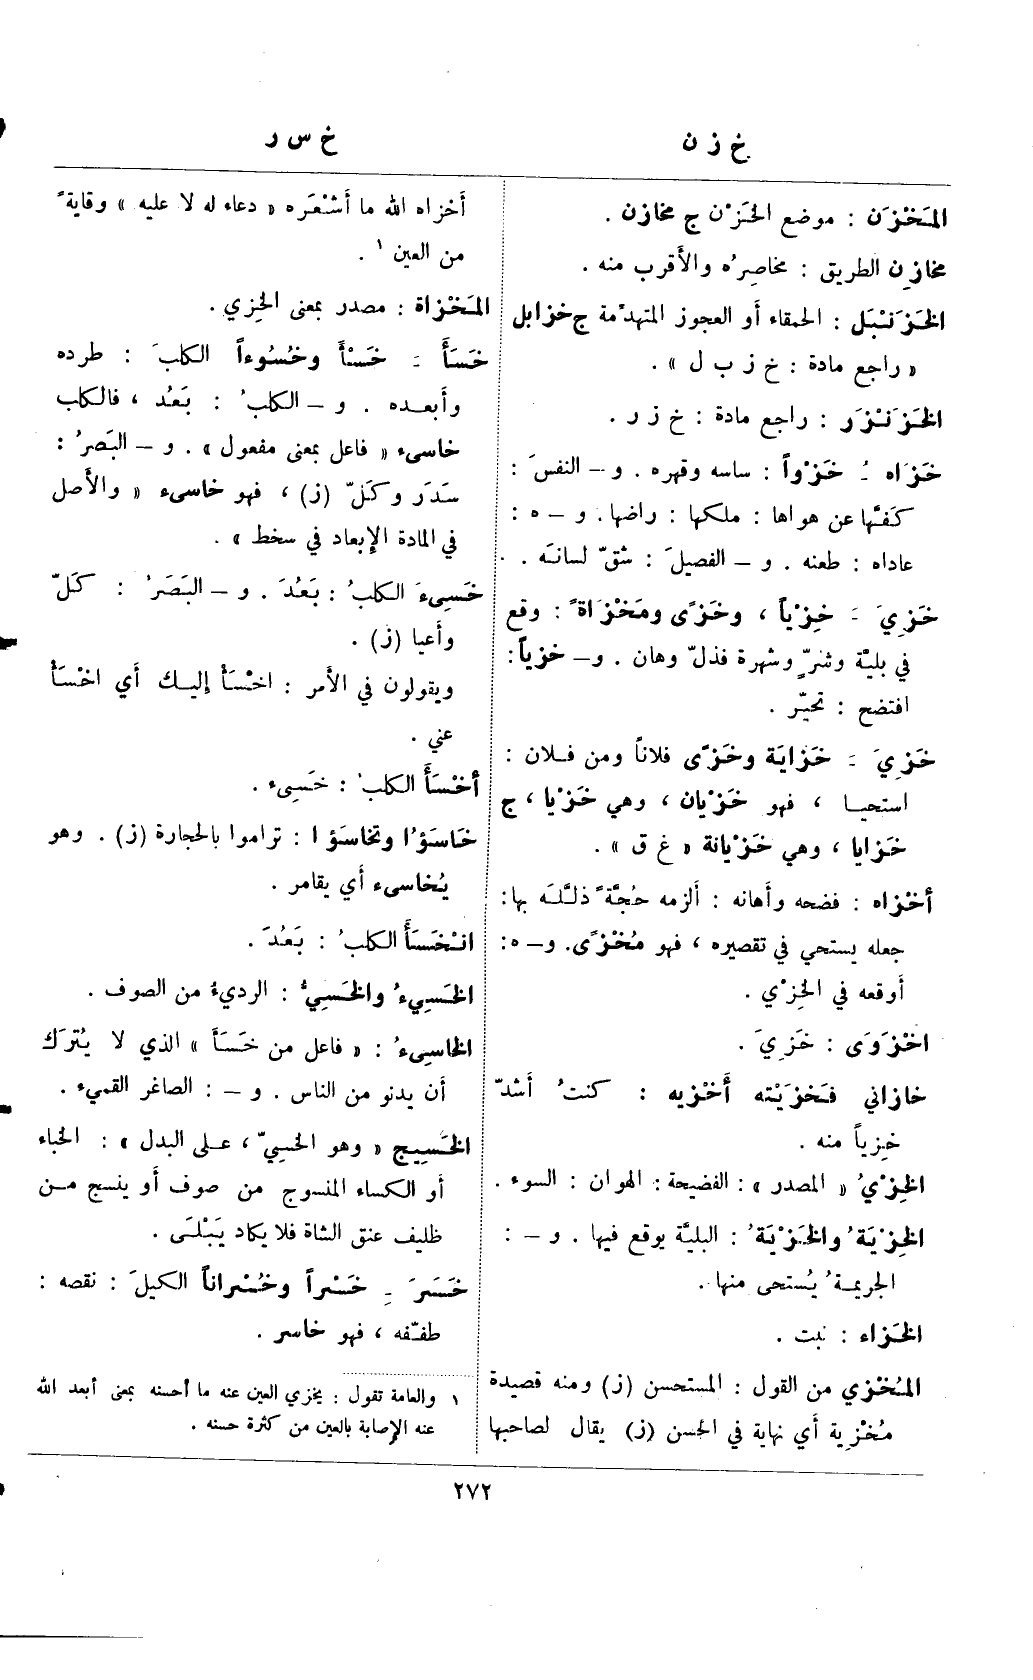 خ ز ن
خ س ر
المَخْزَن : موضع الخَزْن ج مخازن .
مخازِن الطريق : مخاصِرُه والأَقرب منه .
الخَزَنْبَل : الحمقاء أو العجوز المتهدّمة ج خزابل
« راجع مادة : خ ز ب ل » .
الخَزَنْزَر : راجع مادة : خ ز ر .
خَزَاه ـُ خَزْواً : ساسه وقهره . و – النفسَ :
كَفَّها عن هواها : ملكها : راضها . و – ه :
عاداه : طعنه . و – الفصيلَ : شقّ لسانَه .
خَزِيَ ـَ خِزْياً ، وخَزًى ومَخْزَاةً : وقع
في بليّة وشرّ وشهرة فذلّ وهان . و – خزياً :
افتضح : تحيّر .
خَزِيَ ـَ خَزايَة وخَزًى فلاناً ومن فلان :
استحيا ، فهو خَزْيان ، وهي خَزْيا ، ج
خَزايا ، وهي خَزْيانة « غ ق » .
أخْزاه : فضحه وأهانه : ألزمه حُجَّةً ذلَّلَه بها :
جعله يستحي في تقصيره ، فهو مُخْزًى. و – ه :
أوقعه في الخِزْي .
اخْزَوَى : خَزِيَ .
خازاني فَخَزَيْته أَخْزيه : كنتُ أشدّ
خِزياً منه .
الخِزْيُ « المصدر » : الفضيحة : الهوان : السوء .
الخِزْيَةُ والخَزْيَةُ : البليَّة يوقع فيها . و – :
الجريمةُ يُستحى منها .
الخَزاء : نبت .
المُخْزي من القول : المستحسن (ز) ومنه قصيدة
مُخْزِية أي نهاية في الحسن (ز) يقال لصاحبها
أخزاه الله ما أشْعَره « دعاء له لا عليه » وقايةً
من العين ١ .
المَخْزاة : مصدر بمعنى الخِزي .
خَسَأَ ـَ خَسْأً وخُسُوءاً الكلبَ : طرده
وأبعده . و – الكلبُ : بَعُد ، فالكلب
خاسىء « فاعل بمعنى مفعول » . و – البَصرُ :
سَدَر وكَلّ (ز) ، فهو خاسىء « والأَصل
في المادة الإبعاد في سخط » .
خَسِىءَ الكلبُ : بَعُدَ . و – البَصَرُ : كَلّ
وأعيا (ز) .
ويقولون في الأمر : اخْسَأْ إليك أي اخْسَأْ
عني .
أخْسَأَ الكلبُ : خَسِىء .
خَاسَؤُا وتخاسَؤُا : تراموا بالحجارة (ز) . وهو
يُخاسىء أي يقامر .
انْخَسَأَ الكلبُ : بَعُدَ .
الخَسِيءُ والخَسِيُّ : الرديءُ من الصوف .
الخاسِىءُ : « فاعل من خَسَأَ » الذي لا يُترَك
أن يدنو من الناس . و – : الصاغر القميء .
الخَسِيج « وهو الخسِيّ ، على البدل » : الخباء
أو الكساء المنسوج من صوف أو ينسج من
ظليف عنق الشاة فلا يكاد يَبْلَى .
خَسَرَ ـِ خَسْراً وخُسْراناً الكيلَ : نقصه :
طفّفه ، فهو خاسر .
١ والعامة تقول : يخزي العين عنه ما أحسنه بمعنى أبعد الله
عنه الإصابة بالعين من كثرة حسنه .
٢٧٢